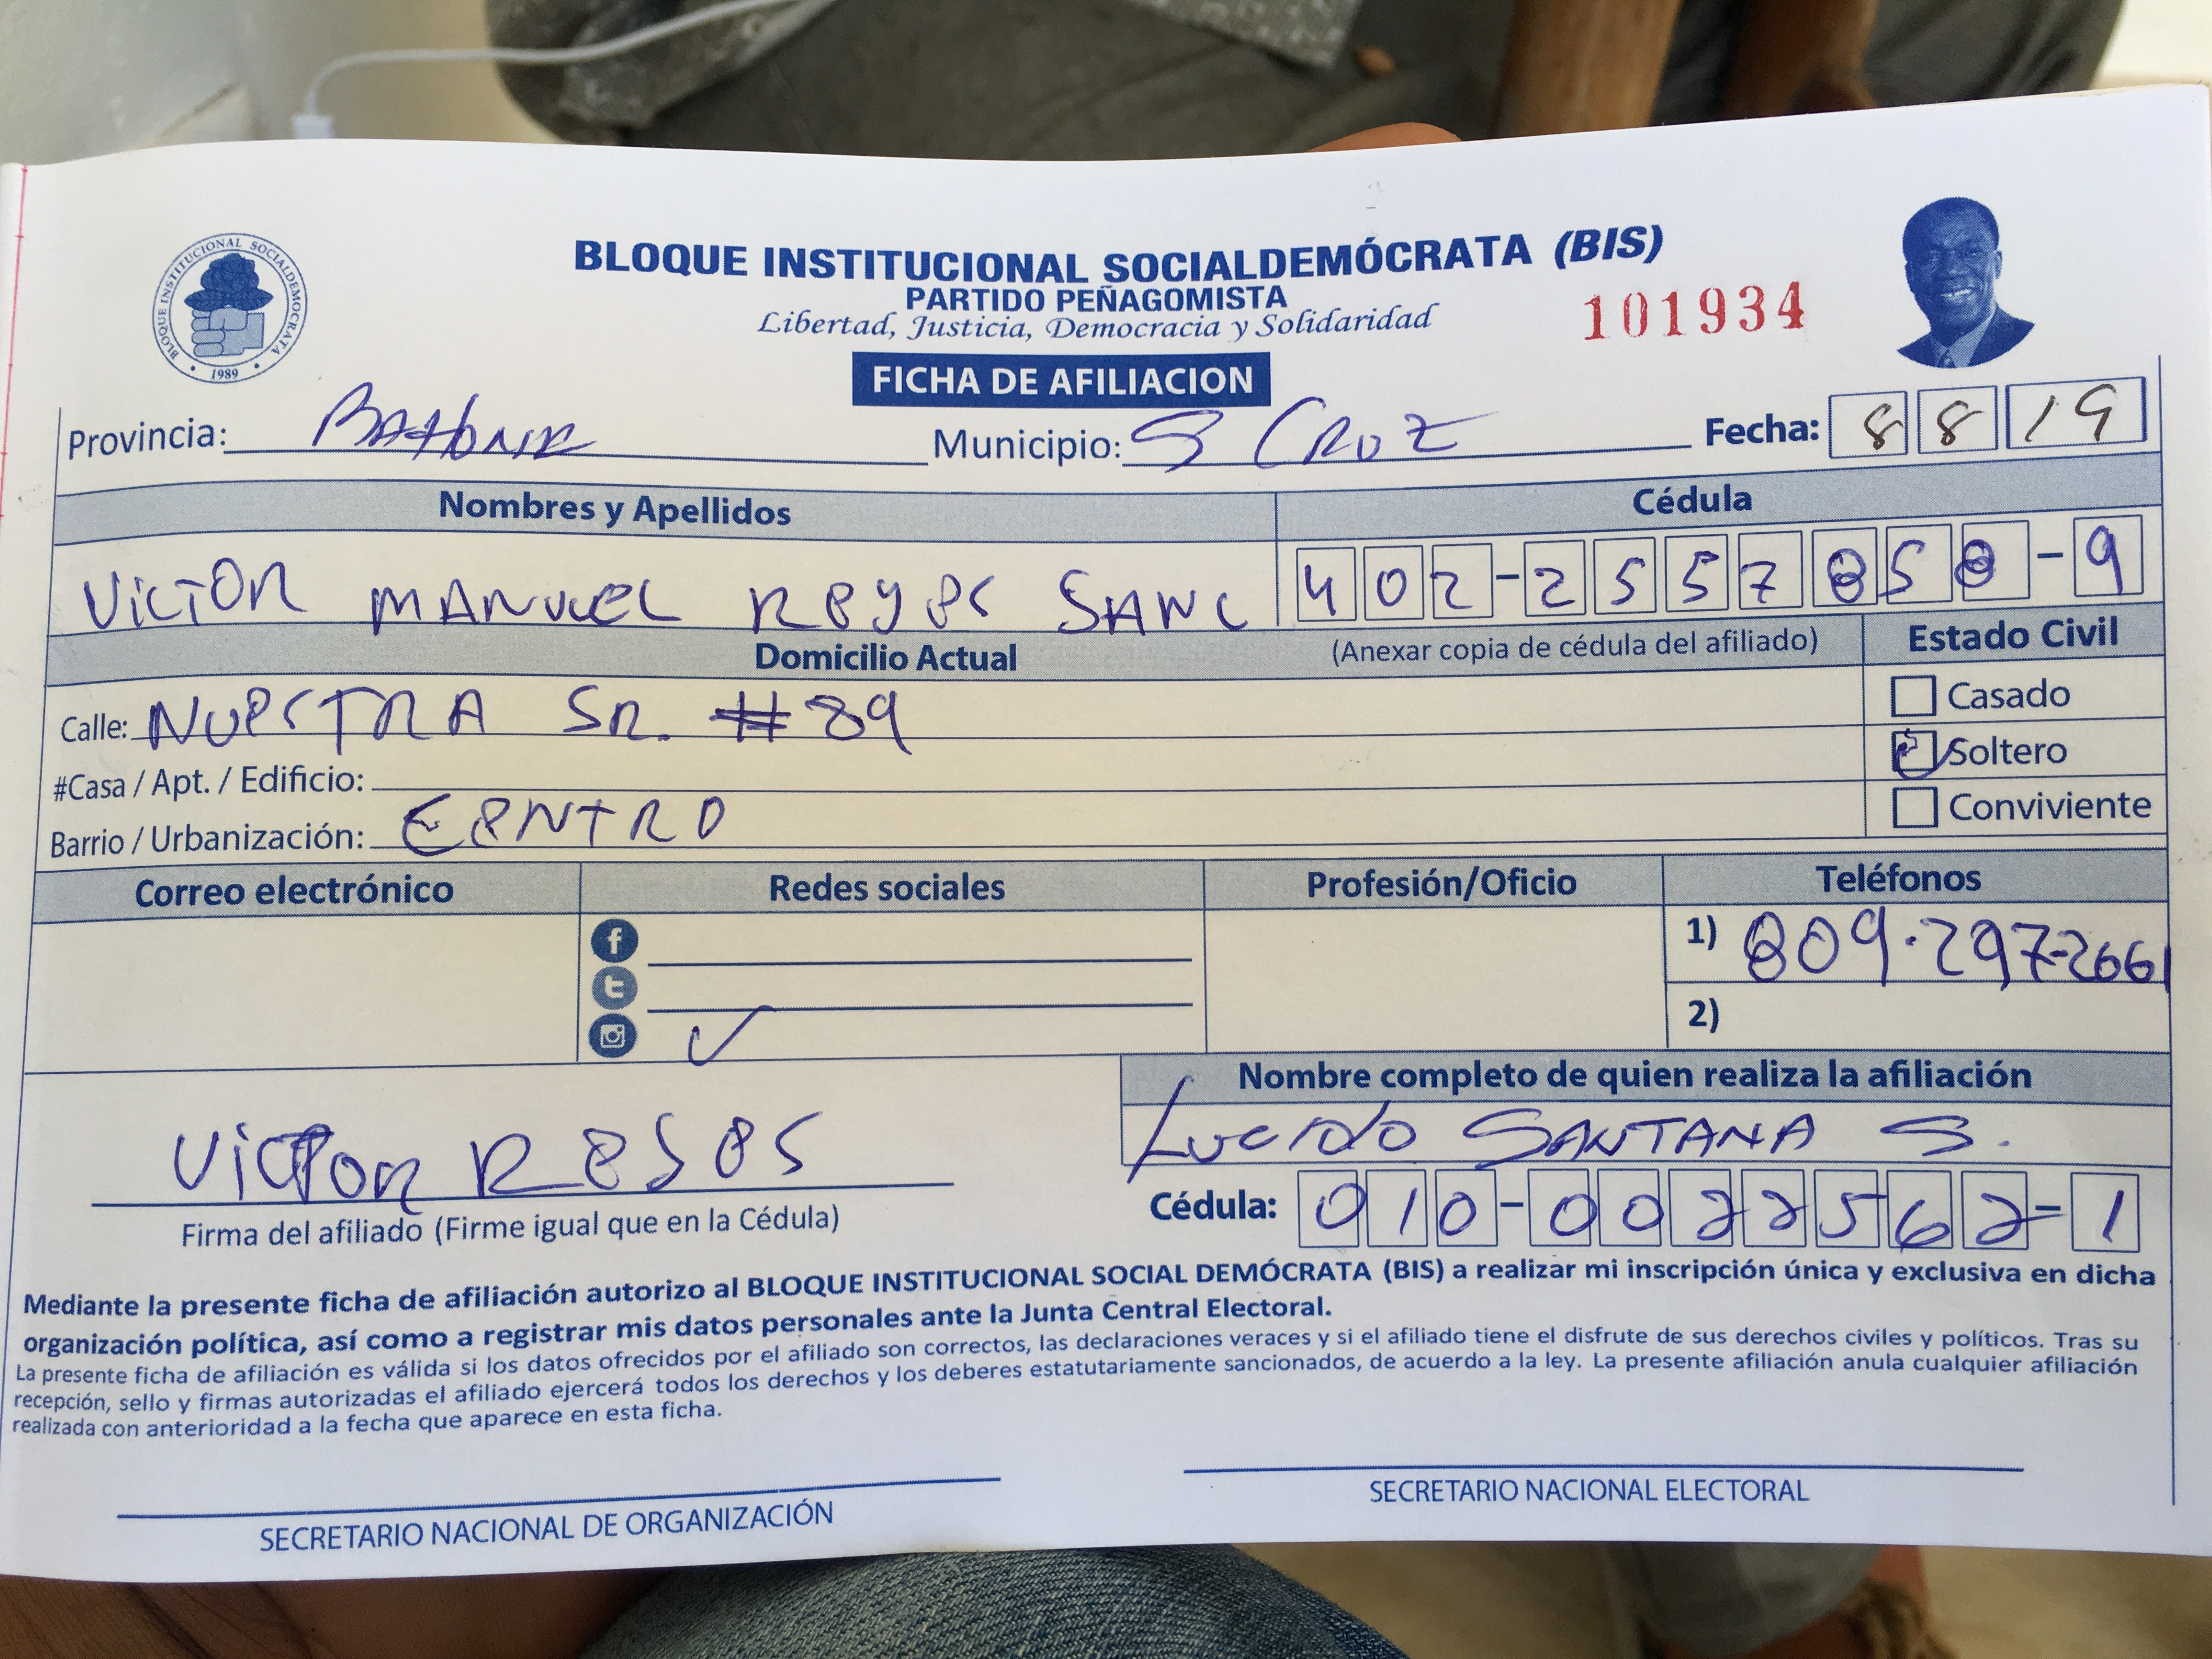 BLOQUE INSTITUCIONAL SOCIALDEMOCRATA
1989
BLOQUE INSTITUCIONAL SOCIALDEMÓCRATA (BIS)
PARTIDO PEÑAGOMISTA
Libertad, Justicia, Democracia y Solidaridad
101934
FICHA DE AFILIACION
Provincia: BAHONR Municipio: S CRUZ Fecha: 8 8 19
Nombres y Apellidos Cédula
VICTOR MANUEL REYES SANC 402-2557858-9
Domicilio Actual (Anexar copia de cédula del afiliado) Estado Civil
Calle: NUESTRA SR. #89 Casado
#Casa / Apt. / Edificio: Soltero
Barrio / Urbanización: CENTRO Conviviente
Correo electrónico Redes sociales Profesión/Oficio Teléfonos
1) 809.297-2661
2)
Nombre completo de quien realiza la afiliación
VICTOR REYES SANTANA S.
Firma del afiliado (Firme igual que en la Cédula) Cédula: 010-0022562-1
Mediante la presente ficha de afiliación autorizo al BLOQUE INSTITUCIONAL SOCIAL DEMÓCRATA (BIS) a realizar mi inscripción única y exclusiva en dicha
organización política, así como a registrar mis datos personales ante la Junta Central Electoral.
La presente ficha de afiliación es válida si los datos ofrecidos por el afiliado son correctos, las declaraciones veraces y si el afiliado tiene el disfrute de sus derechos civiles y políticos. Tras su
recepción, sello y firmas autorizadas el afiliado ejercerá todos los derechos y los deberes estatutariamente sancionados, de acuerdo a la ley. La presente afiliación anula cualquier afiliación
realizada con anterioridad a la fecha que aparece en esta ficha.
SECRETARIO NACIONAL DE ORGANIZACIÓN SECRETARIO NACIONAL ELECTORAL